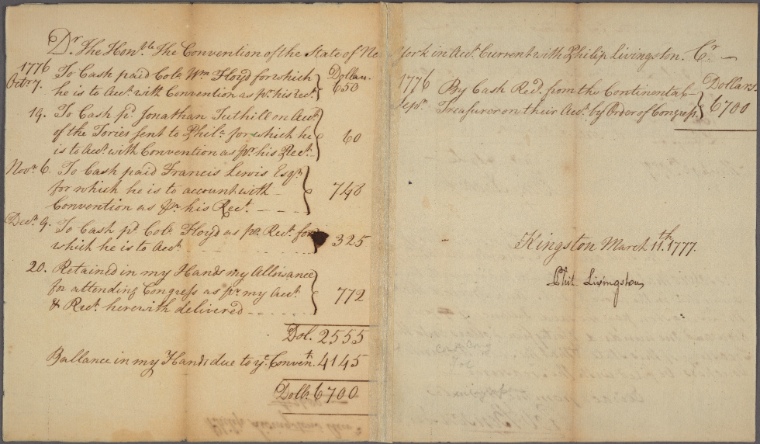 Dr. The Honble. The Convention of the State of New York in Acct. Current with Philip Livingston. Cr.
1776 To Cash paid Colo. Wm. Floyd for which Dollars
Octr. 7. he is to Acct. with Convention as pr. his rect. 650
19. To Cash pd. Jonathan Tuthill on Acct.
of the Tories sent to Phila. for which he 60
is to Acct. with Convention as pr. his Rect.
Novr. 6. To Cash paid Francis Lewis Esqr.
for which he is to account with 748
Convention as pr. his Rect.
Decr. 9. To Cash pd. Colo. Floyd as pr. Rect. for 325
which he is to Acct.
20. Retained in my Hands my Allowance
for attending Congress as pr. my Acct. 772
& Rect. herewith delivered
Dol. 2555
Ballance in my Hands due to ye. Conven. 4145
Dolls. 6700
1776 By Cash Recd. from the Continental Dollars.
Sepr. Treasurer on their Acct. by Order of Congress 6700
Kingston March 11.th 1777.
Phil. Livingston